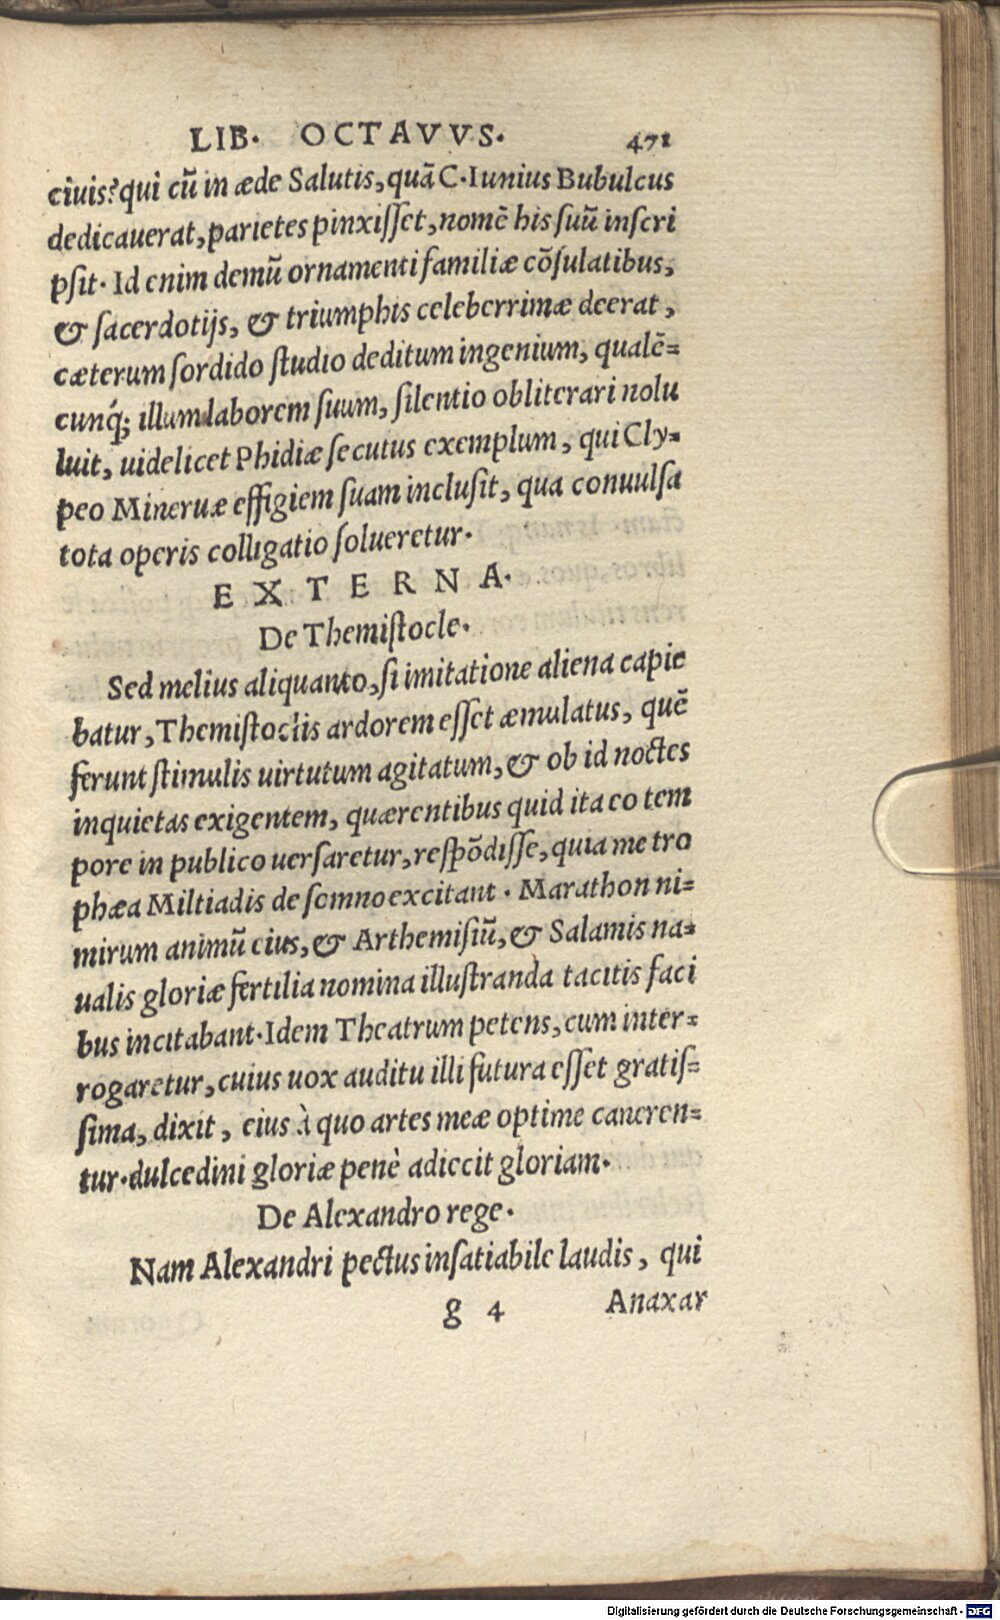 LIB. OCTAVVS. 471
ciuis? qui cū in æde Salutis, quā C. Iunius Bubulcus
dedicauerat, parietes pinxisset, nomē his suū inscri
psit. Id enim demū ornamenti familiæ cōsulatibus,
& sacerdotijs, & triumphis celeberrimæ deerat,
cæterum sordido studio deditum ingenium, qualē=
cunq; illum laborem suum, silentio obliterari nolu
luit, uidelicet Phidiæ secutus exemplum, qui Cly=
peo Mineruæ effigiem suam inclusit, qua conuulsa
tota operis colligatio solueretur.
EXTERNA.
De Themistocle.
Sed melius aliquanto, si imitatione aliena capie
batur, Themistoclis ardorem esset æmulatus, quē
ferunt stimulis uirtutum agitatum, & ob id noctes
inquietas exigentem, quærentibus quid ita eo tem
pore in publico uersaretur, respōdisse, quia me tro
phæa Miltiadis de somno excitant. Marathon ni=
mirum animū eius, & Arthemisiū, & Salamis na=
ualis gloriæ fertilia nomina illustranda tacitis faci
bus incitabant. Idem Theatrum petens, cum inter=
rogaretur, cuius uox auditu illi futura esset gratis=
sima, dixit, eius à quo artes meæ optime caneren=
tur. dulcedini gloriæ penè adiecit gloriam.
De Alexandro rege.
Nam Alexandri pectus insatiabile laudis, qui
g 4 Anaxar
Digitalisierung gefördert durch die Deutsche Forschungsgemeinschaft - DFG